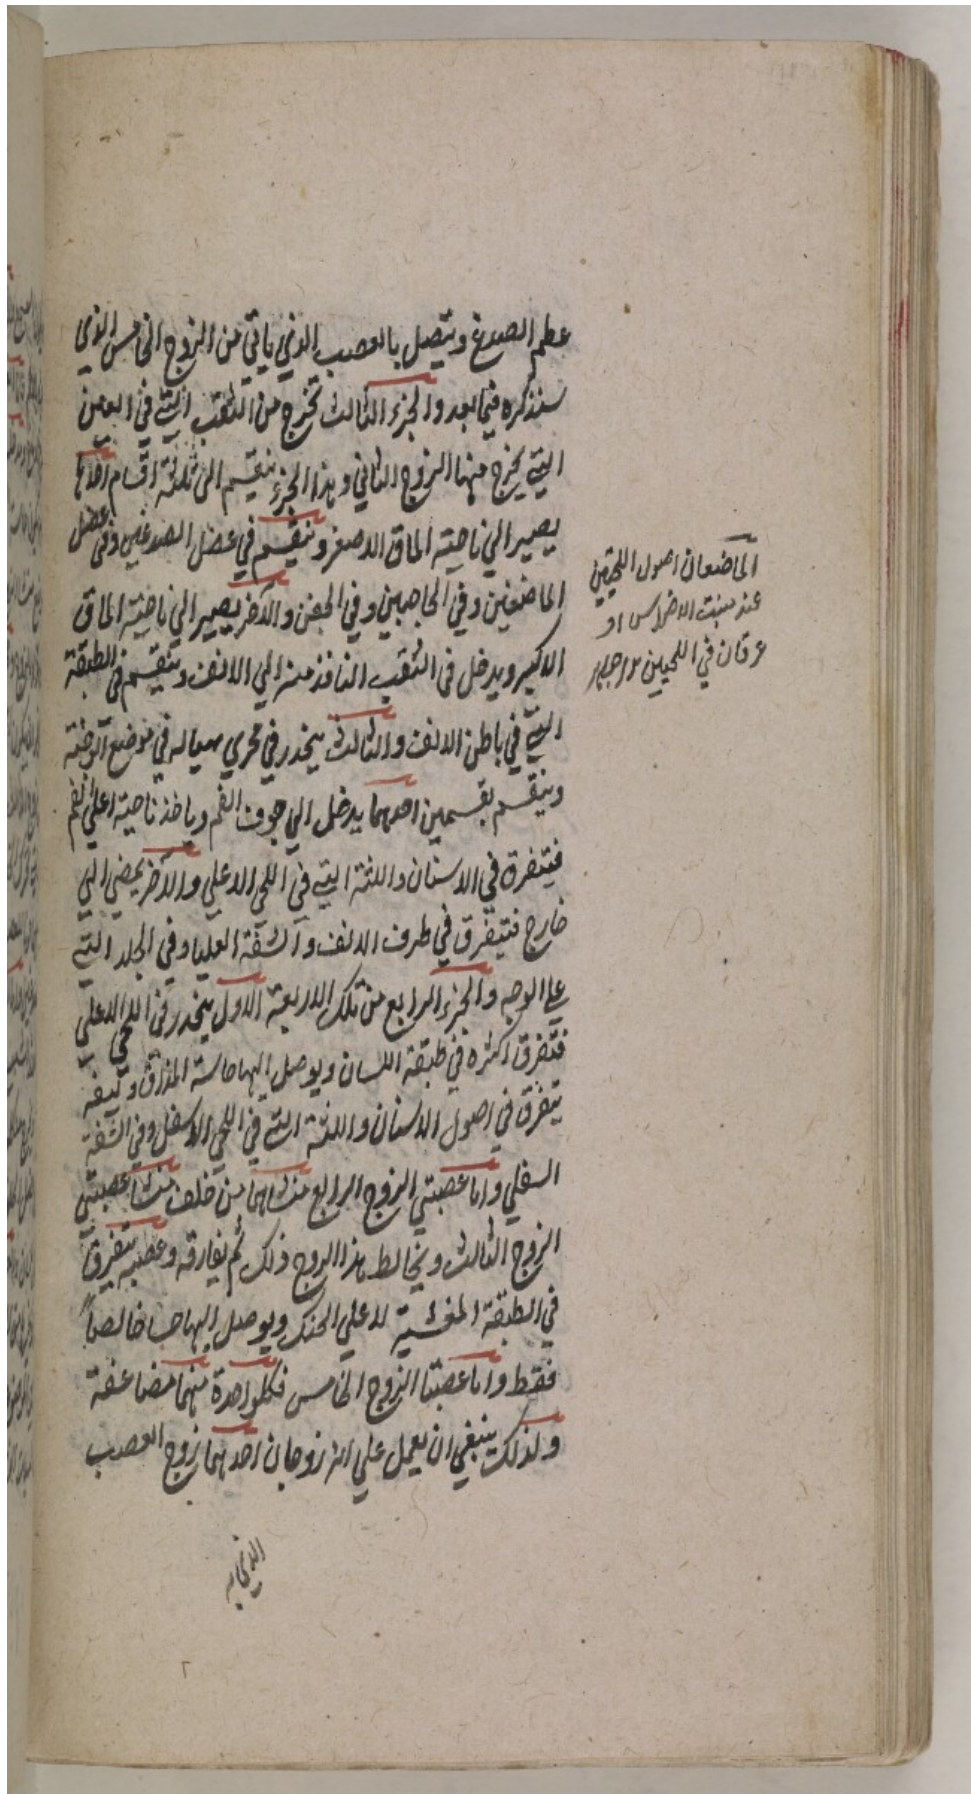 عظم الصدغ ويتصل بالعصب الذي ياتي من الزوج الخامس الذي
سنذكره فيما بعد والجزء الثالث تخرج من الثقب التي في العين
التي يخرج منها الزوج الثاني وهذا الجزء ينقسم الى ثلثة اقسام احدها
يصير الي ناحية الماق الاصغر وينقسم في عضل الصدغين وفي عضل
الماضغين وفي الحاجبين وفي الجفن والآخر يصير الي ناحية الماق
الاكبر ويدخل في الثقب النافذ منه الي الانف وينقسم في الطبقة
التي في باطن الانف والثالث ينحدر في مجري مهياله في موضع الوجنة
وينقسم بقسمين احدهما يدخل الي جوف الفم وياخذ ناحية اعلى الفم
فيتفرق في الاسنان واللثة التي في اللحي الاعلي والآخر يمضي الي
خارج فيتفرق في طرف الانف والشفة العليا وفي الجلد التي
علي الوجه والجزء الرابع من تلك الاربعة الاول ينحدر في اللحي الاعلي
فتفرق اكثره في طبقة اللسان ويوصل اليها حاسة المذاق وكيفه
يتفرق في اصول الاسنان واللثة التي في اللحي الاسفل وفي الشفة
السفلي واما عصبتي الزوج الرابع منشاهما من خلف منشا عصبتي
الزوج الثالث ويخالط هذا الزوج ذلك ثم يفارقه وعصبه يتفرق
في الطبقة المغشية لاعلي الحنك ويوصل اليها حسا خالصاً
فقط واما عصبتا الزوج الخامس فكلواحدة منهما مضاعفة
ولذلك ينبغي ان يعمل علي انه زوجان احدهما زوج العصب
الماضغان اصول اللحيين
عند منبت الاضراس او
عرقان في اللحيين